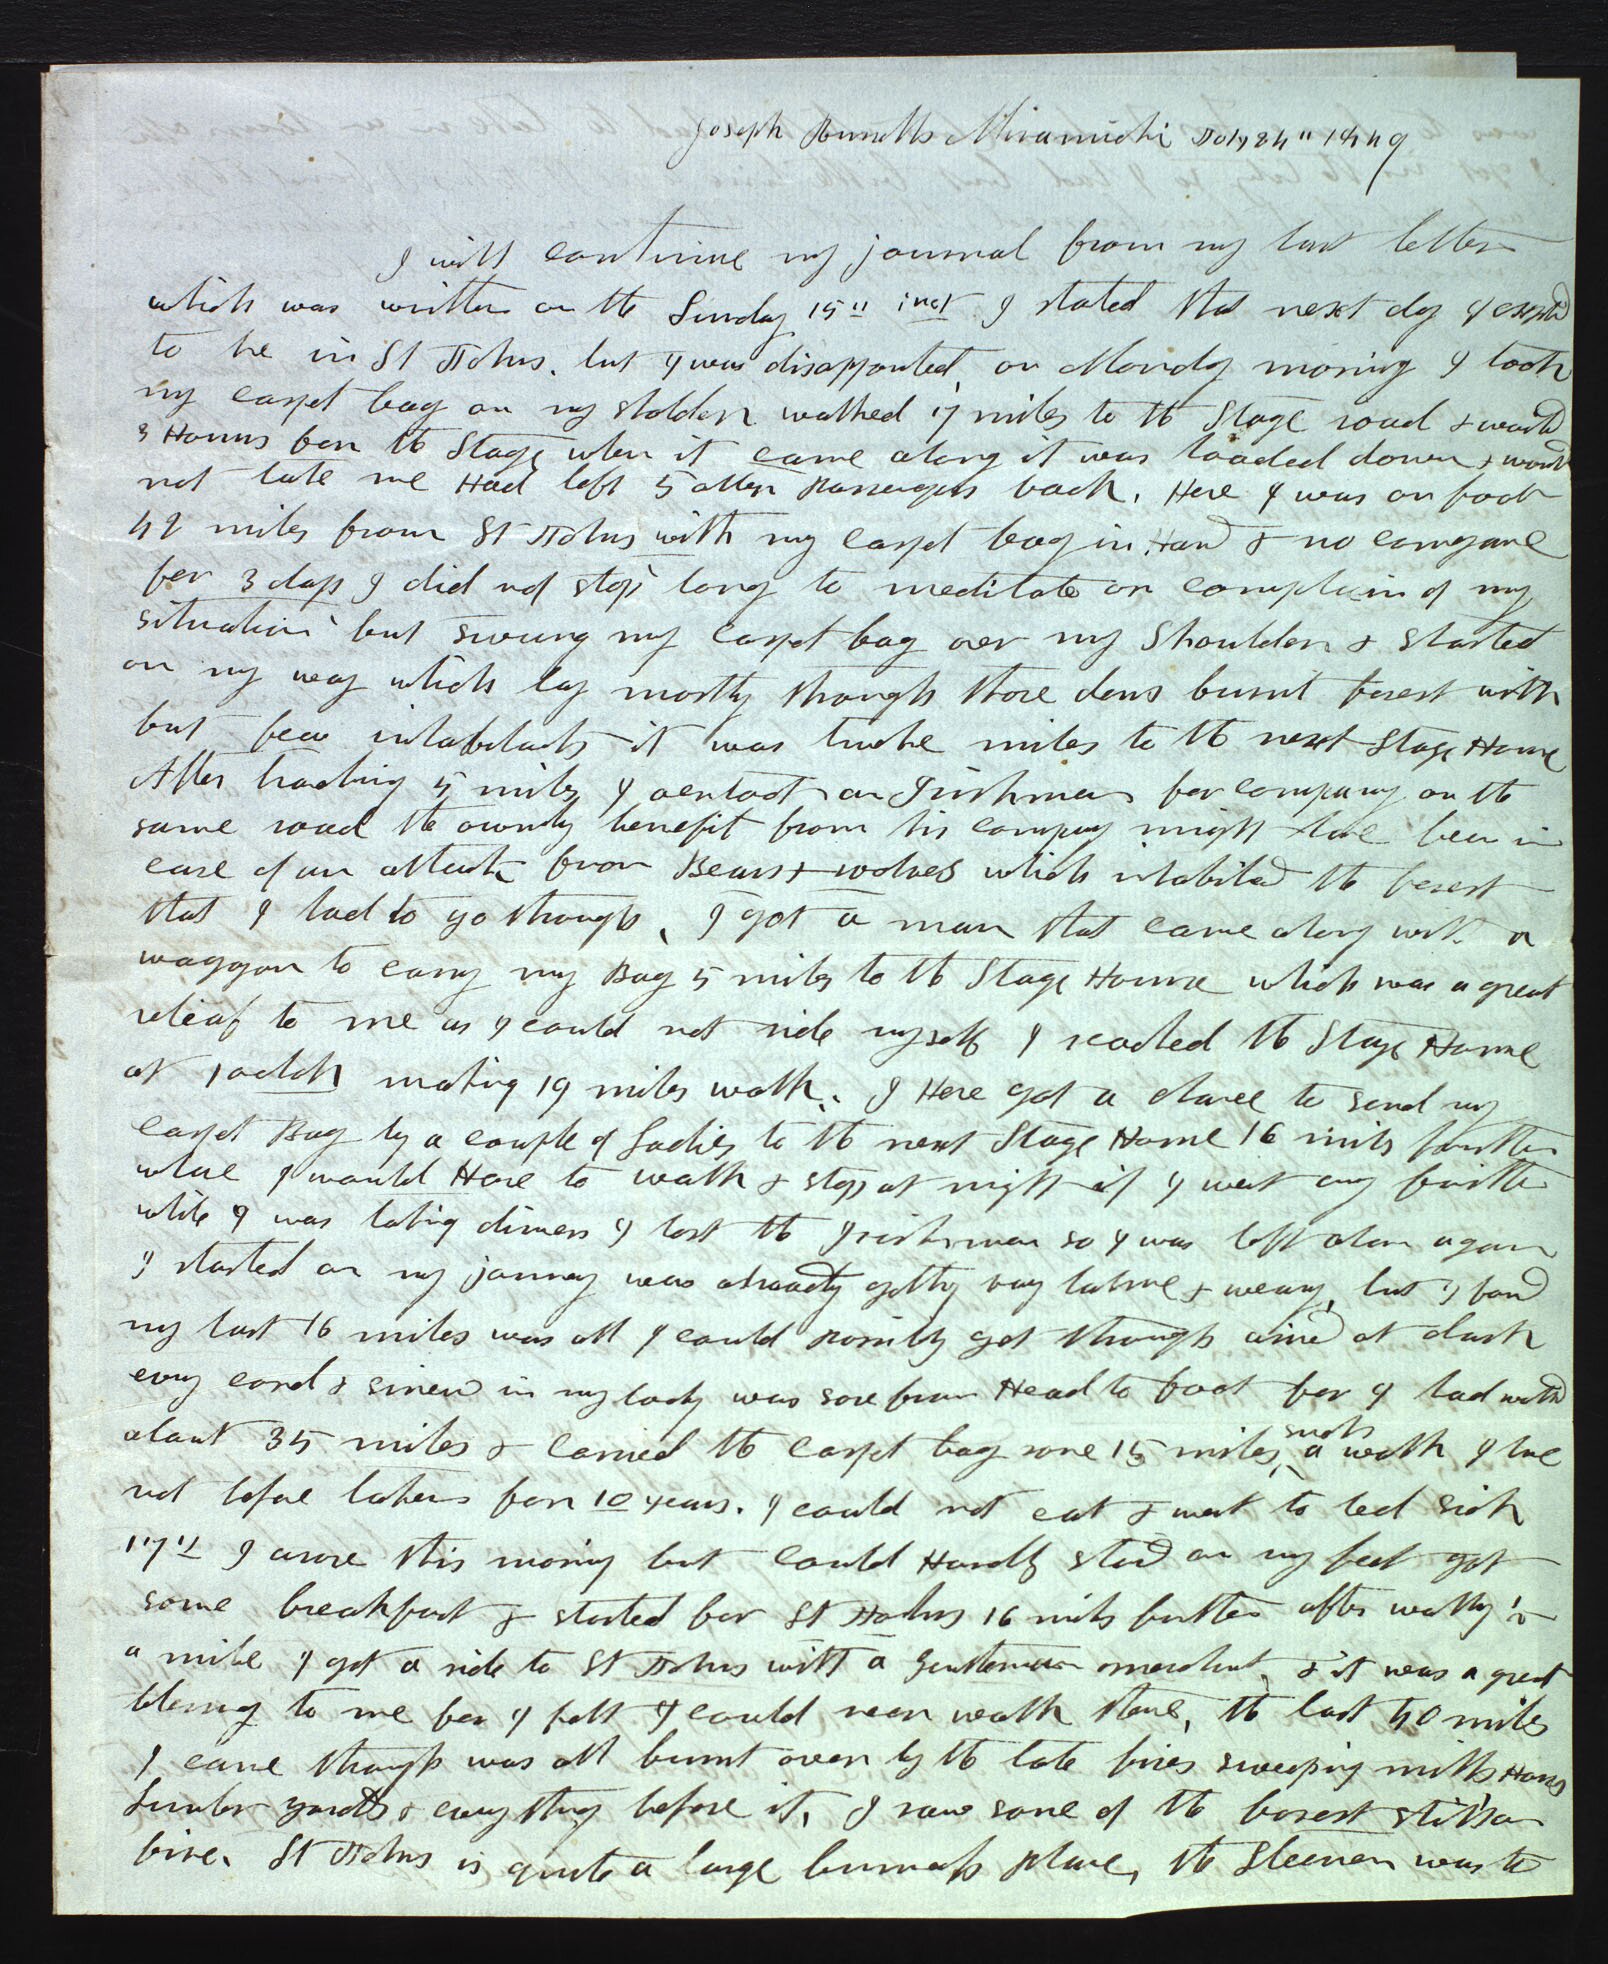 Joseph Russells Miramichi July 24" 1849
I will continue my journal from my last letter
which was written on the Sunday 15" inst I stated that next day I expted
to be in St Johns. but I was disappointed, on Monday morning I took
my carpet bag on my sholder walked 7 miles to the Stage road & waited
3 Hours for the Stage when it came along it was loaded down & would
not take me Had left 5 other Passengers back. Here I was on foot
42 miles from St Johns with my carpet bag in Hand & no conveyance
for 3 days I did not stop long to meditate or complain of my
situation but swung my carpet bag over my Shoulder & started
on my way which lay mostly through those dens burnt forest with
but few inhabitants it was twelve miles to the next Stage House
After traveling 5 miles I overtook an Irishman for company on the
same road the ownly benefit from his company might have been in
case of an attack from Bears & wolves which inhabited the forest
that I had to go through, I got a man that came along with a
waggon to carry my Bag 5 miles to the Stage House which was a great
releaf to me as I could not ride myself I reached the Stage House
at 1 oclck making 19 miles walk. I Here got a chance to send my
Carpet Bag by a couple of Ladies to the next Stage House 16 miles further
where I would Have to walk & stop at night if I went any further
while I was taking dinner I lost the Irishman so I was left alone again
I started on my journey was already getting very lame & weary, but I found
my last 16 miles was all I could possibly get through arived at dark
every cord & sinew in my body was sore from Head to foot for I had walkd
about 35 miles & carried the carpet bag some 15 miles, such a walk I have
not before taken for 10 years. I could not eat & went to bed sick
17" I arose this morning but could Hardly stand on my feet got
some breakfast & started for St Johns 16 miles further after walking
a mile I got a ride to St Johns with a Gentleman merchant, & it was a great
blessing to me for I felt I could never walk there, the last 40 miles
I came through was all burnt over by the late fires sweeping mills Houses
Lumber yards & every thing before it, I saw some of the forest still on
fire. St Johns is quite a large business place, the Steemer was to